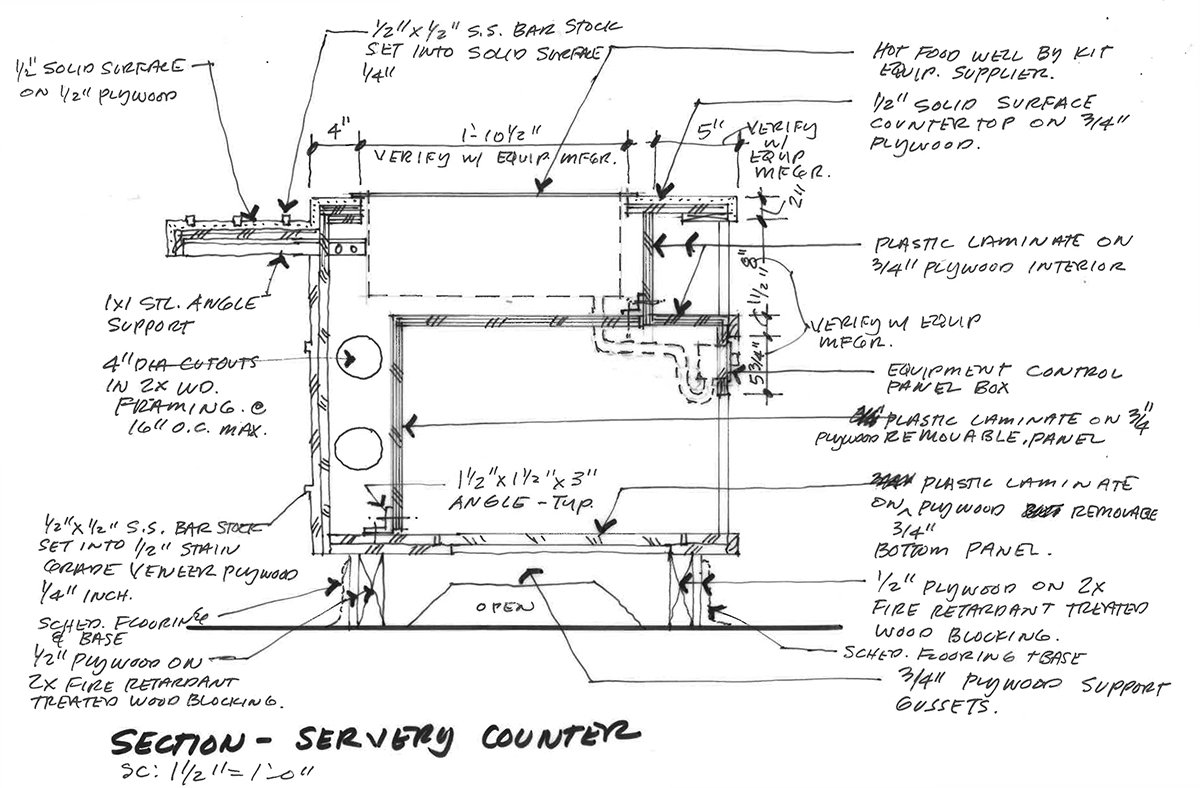 1/2" x 1/2" S.S. BAR STOCK
SET INTO SOLID SURFACE
1/4"
1/2" SOLID SURFACE
ON 1/2" PLYWOOD
HOT FOOD WELL BY KIT
EQUIP. SUPPLIER.
1/2" SOLID SURFACE
COUNTER TOP ON 3/4"
PLYWOOD.
4"
1'-10 1/2"
VERIFY W/ EQUIP MFGR.
5"
VERIFY
W/
EQUIP
MFGR.
2"
PLASTIC LAMINATE ON
3/4" PLYWOOD INTERIOR
8"
1 1/2"
5 3/4"
VERIFY W/ EQUIP
MFGR.
1X1 STL. ANGLE
SUPPORT
4" DIA CUTOUTS
IN 2X WD.
FRAMING @
16" O.C. MAX.
EQUIPMENT CONTROL
PANEL BOX
PLASTIC LAMINATE ON 3/4
PLYWOOD REMOVABLE PANEL
1 1/2" x 1 1/2" x 3"
ANGLE - TYP.
PLASTIC LAMINATE
ON PLYWOOD REMOVABE
3/4"
BOTTOM PANEL.
1/2" x 1/2" S.S. BAR STOCK
SET INTO 1/2" STAIN
GRADE VENEER PLYWOOD
1/4" INCH.
SCHED. FLOORING
& BASE
1/2" PLYWOOD ON
2X FIRE RETARDANT
TREATED WOOD BLOCKING.
OPEN
1/2" PLYWOOD ON 2X
FIRE RETARDANT TREATED
WOOD BLOCKING.
SCHED. FLOORING + BASE
3/4" PLYWOOD SUPPORT
GUSSETS.
SECTION - SERVERY COUNTER
SC: 1 1/2" = 1'-0"